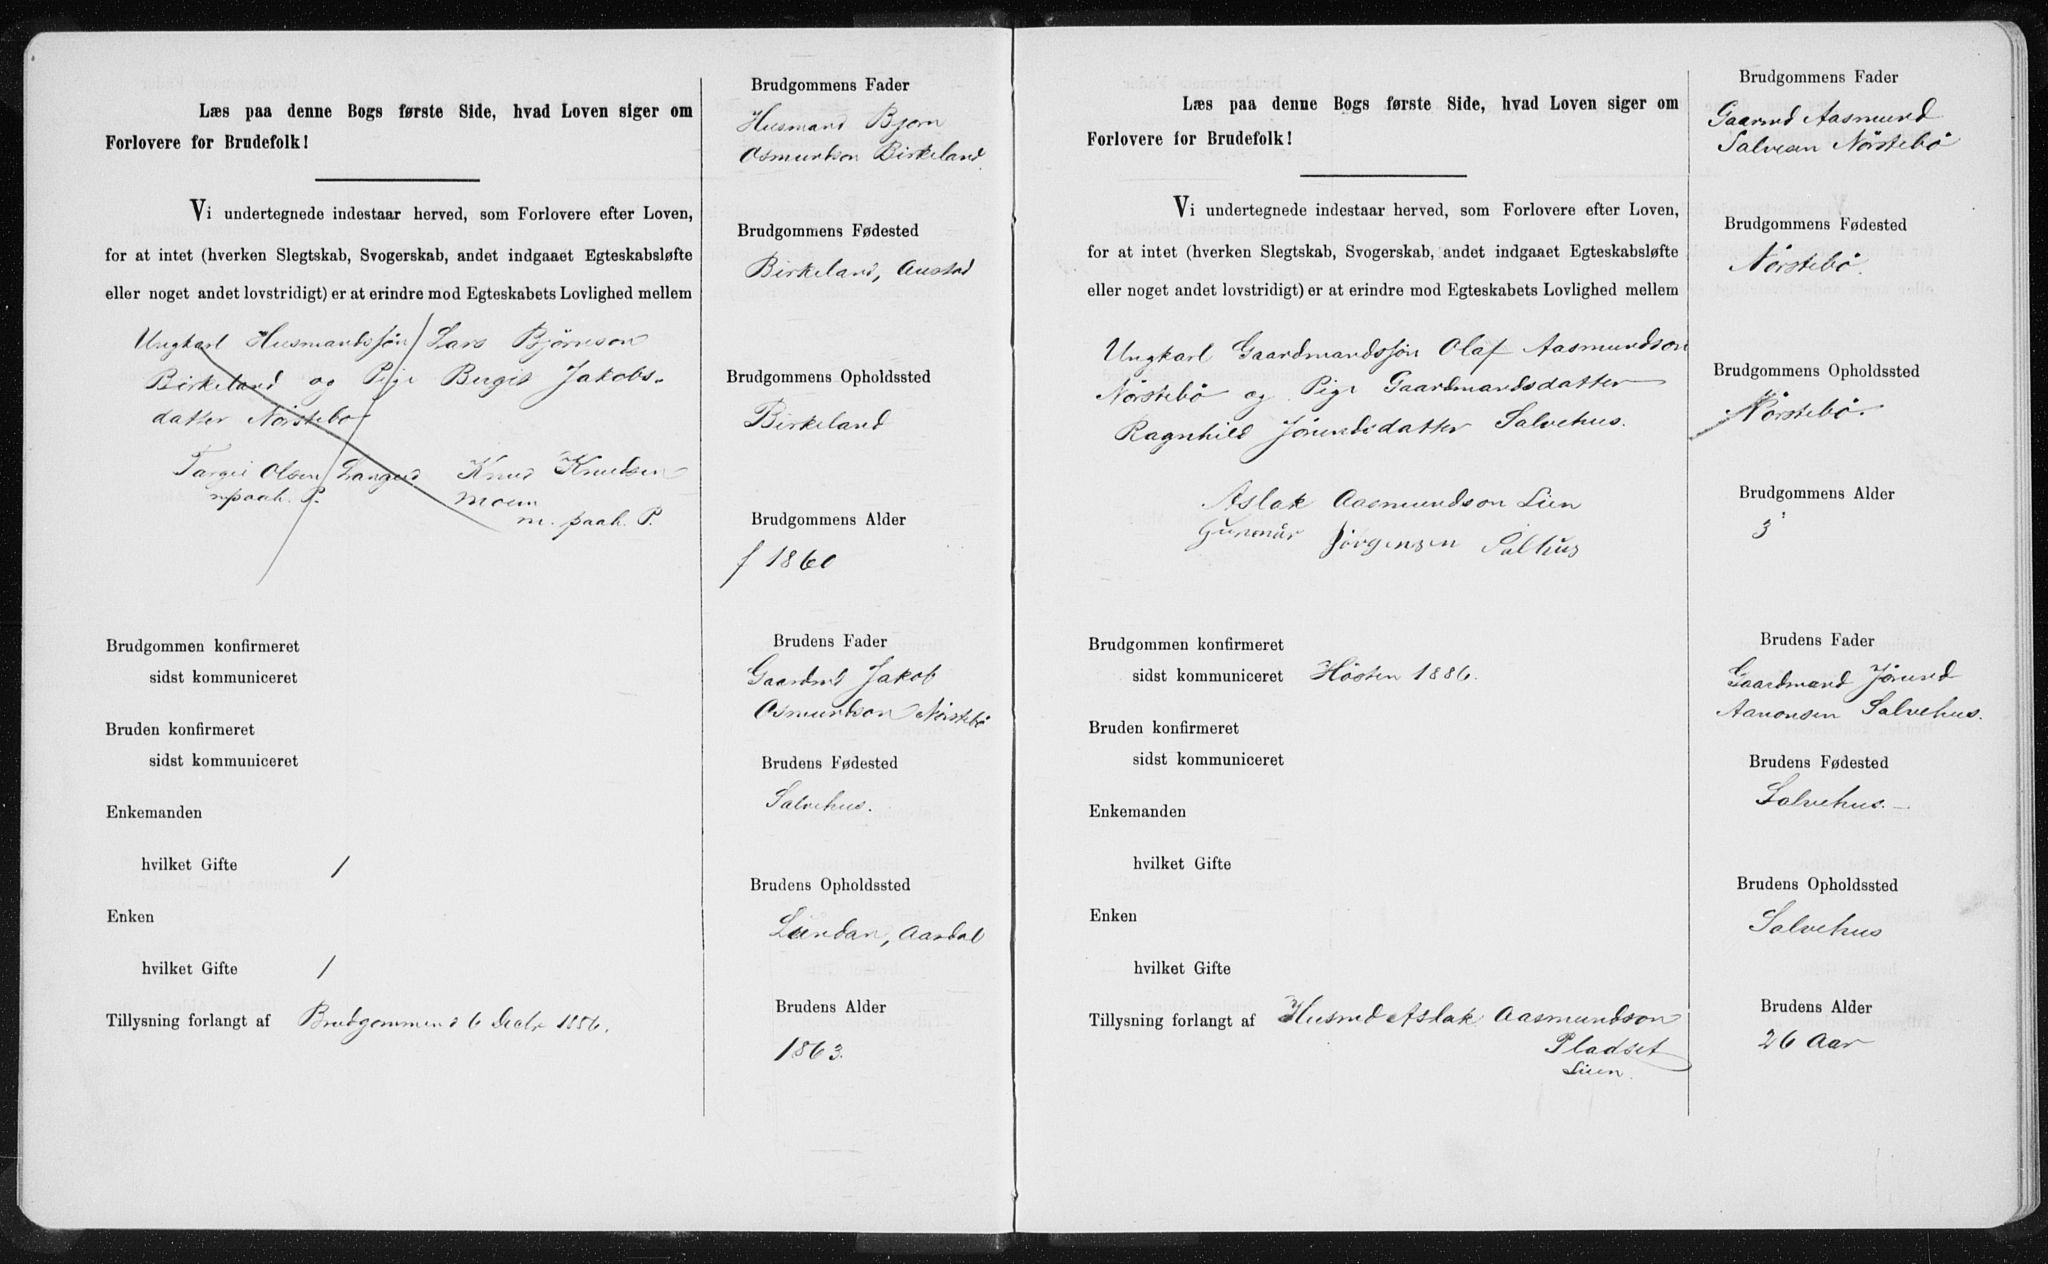 Læs paa denne Bogs første Side, hvad Loven siger om
Forlovere for Brudefolk!
Vi undertegnede indestaar herved, som Forlovere efter Loven,
for at intet (hverken Slegtskab, Svogerskab, andet indgaaet Egteskabsløfte
eller noget andet lovstridigt) er at erindre mod Egteskabets Lovlighed mellem
Ungkarl Husmandssøn Lars Bjørnson
Birkeland og Pige Bergit Jakobs-
datter Nörstebö
Targei Olsen Langeid Knud Knudsen
mpaah. P. Moen
m. paah. P.
Brudgommen konfirmeret
sidst kommuniceret
Bruden konfirmeret
sidst kommuniceret
Enkemanden
hvilket Gifte 1
Enken
hvilket Gifte 1
Tillysning forlangt af Brudgommen d 6 Decbr 1886.
Brudgommens Fader
Husmand Bjorn
Osmundson Birkeland
Brudgommens Fødested
Birkeland, Austad
Brudgommens Opholdssted
Birkeland
Brudgommens Alder
f 1860
Brudens Fader
Gaardmd Jakob
Osmundson Nörstebö
Brudens Fødested
Salvehus.
Brudens Opholdssted
Lundan, Aardal
Brudens Alder
1863.
Læs paa denne Bogs første Side, hvad Loven siger om
Forlovere for Brudefolk!
Vi undertegnede indestaar herved, som Forlovere efter Loven,
for at intet (hverken Slegtskab, Svogerskab, andet indgaaet Egteskabsløfte
eller noget andet lovstridigt) er at erindre mod Egteskabets Lovlighed mellem
Ungkarl Gaardmandssøn Olaf Aasmundson
Nörstebö og Pige Gaardmandsdatter
Ragnhild Jörundsdatter Salvehus.
Aslak Aasmundson Lien
Gunnar Jörgensen Salhus
Brudgommen konfirmeret
sidst kommuniceret Hösten 1886.
Bruden konfirmeret
sidst kommuniceret
Enkemanden
hvilket Gifte
Enken
hvilket Gifte
Tillysning forlangt af Husmd Aslak Aasmundson
Pladset
Lien.
Brudgommens Fader
Gaarmd Aasmund
Salvesen Nörstebö
Brudgommens Fødested
Nörstebö.
Brudgommens Opholdssted
Nörstebö.
Brudgommens Alder
3
Brudens Fader
Gaardmand Jörund
Aanonsen Salvehus.
Brudens Fødested
Salvehus.
Brudens Opholdssted
Salvehus
Brudens Alder
26 Aar